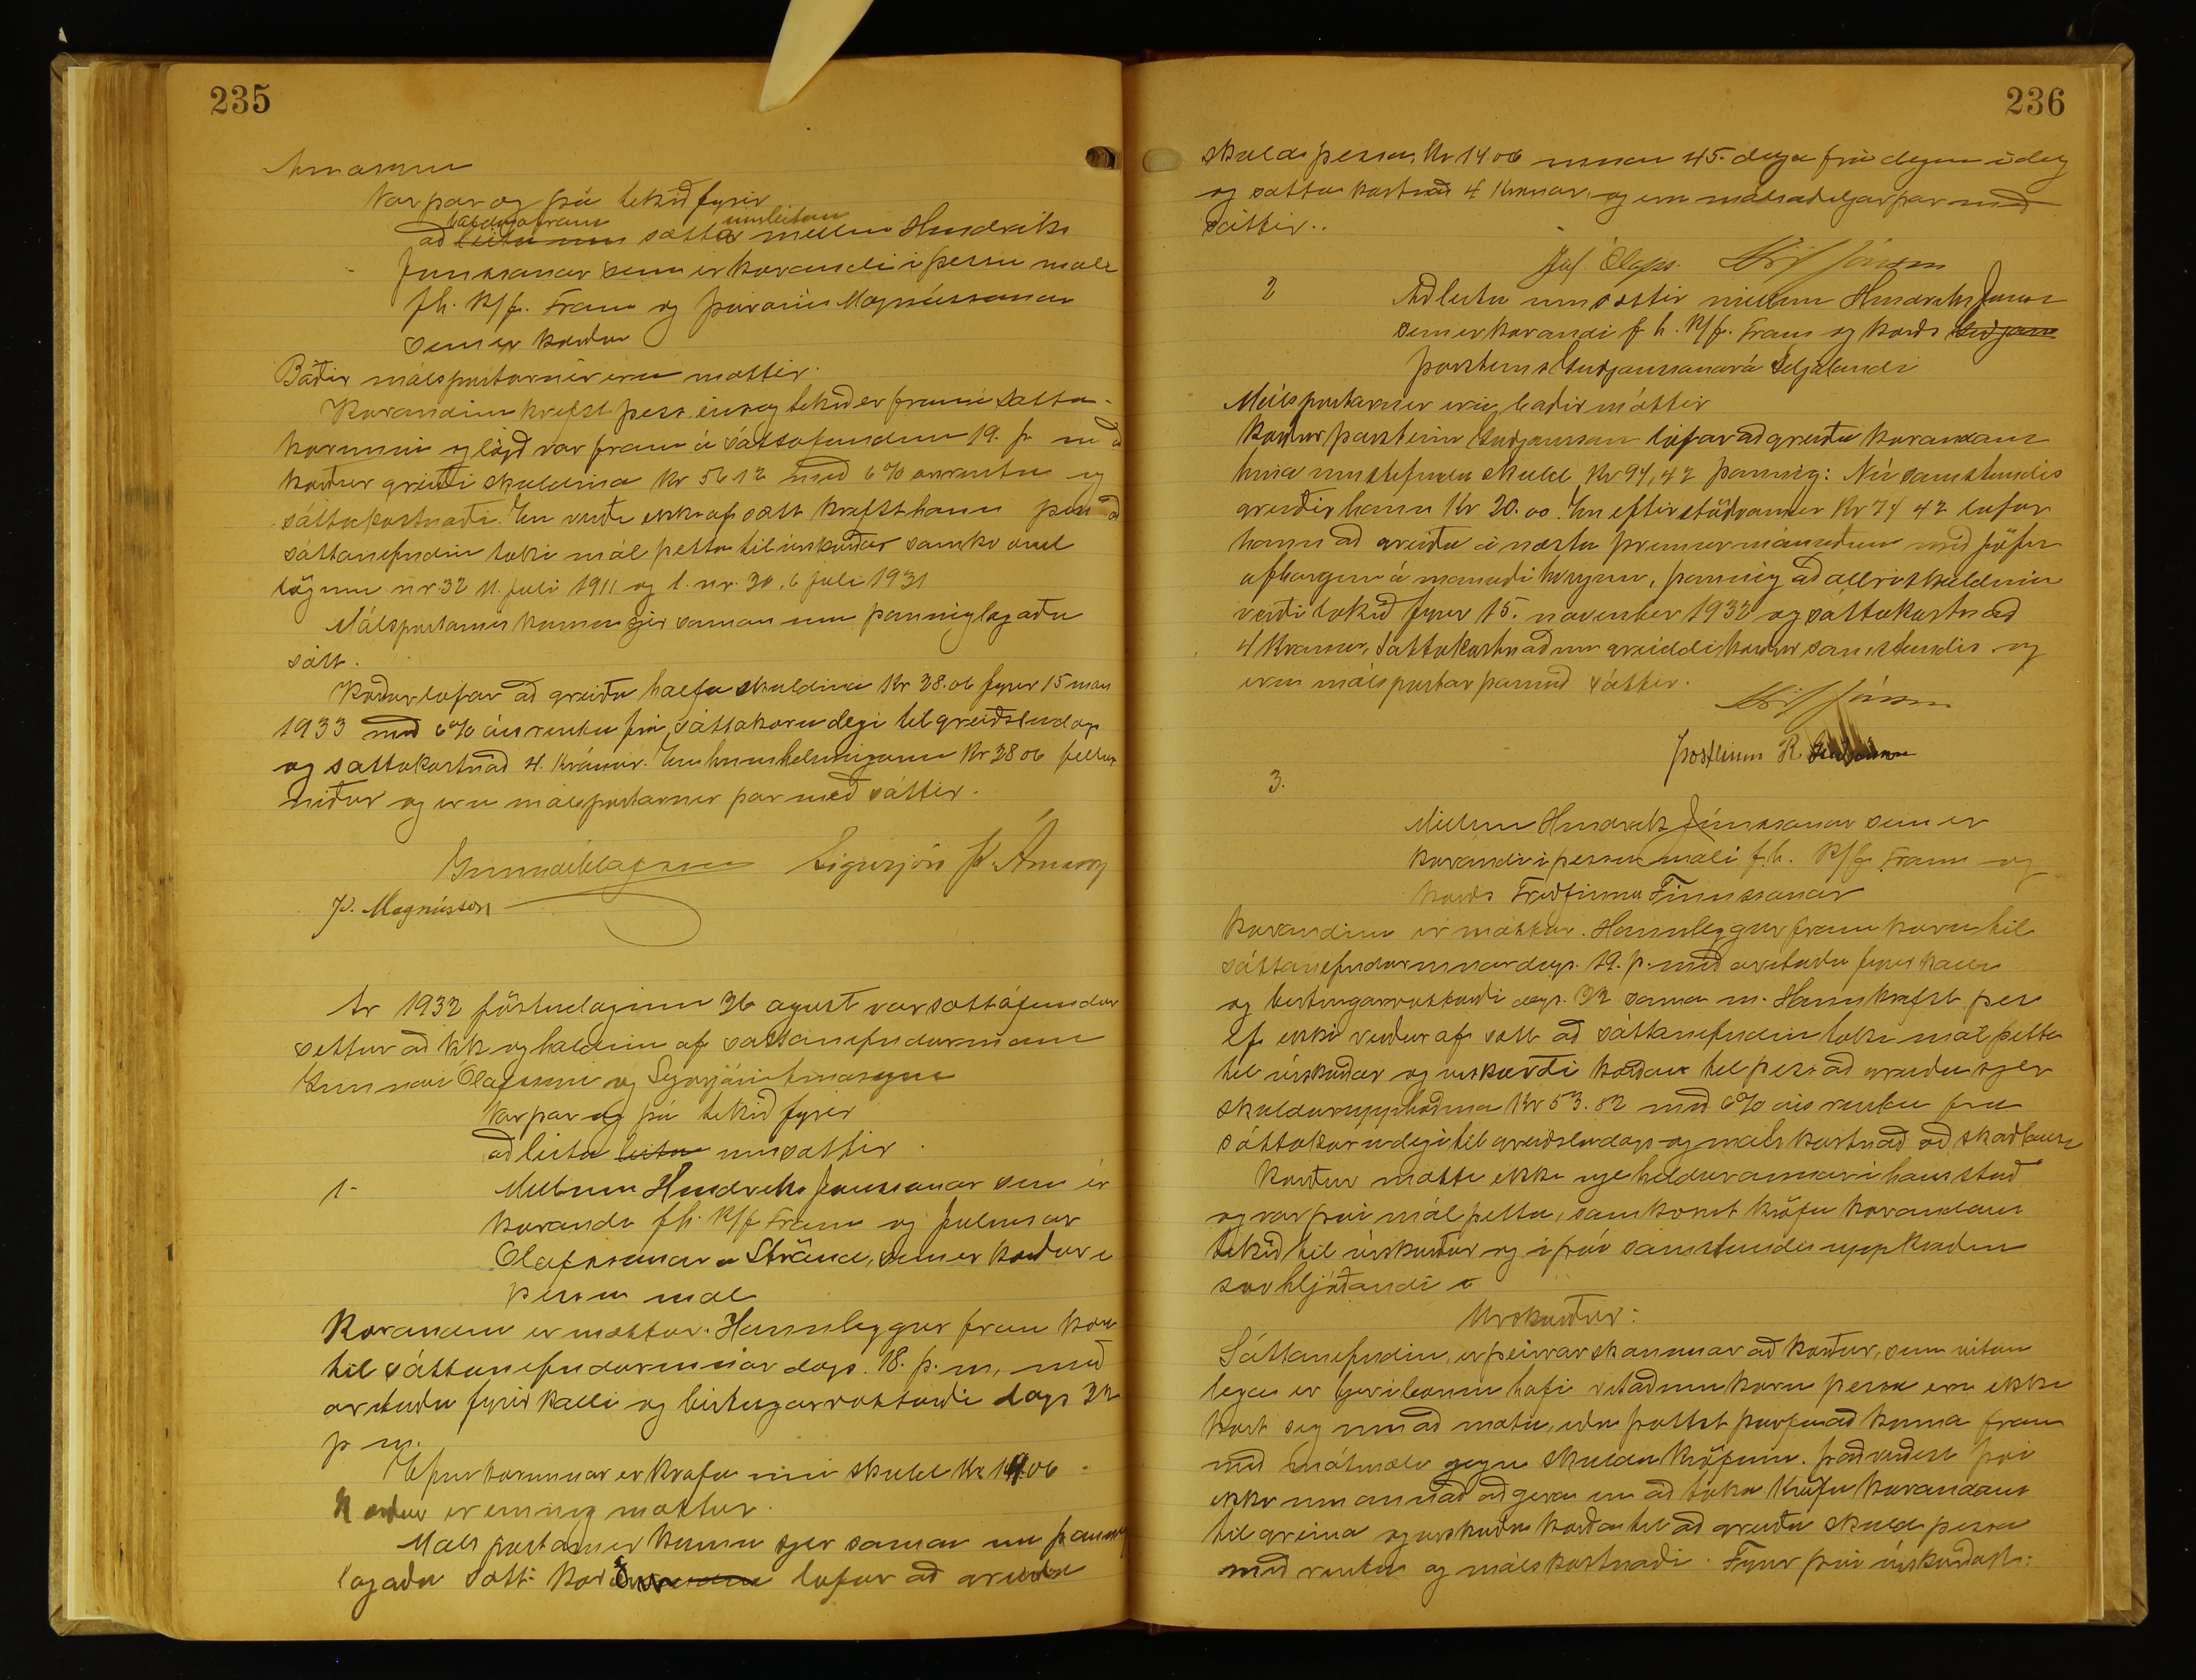 235
Árnasyni
Var þar og þá tekið fyrir
haldið áfram umleitan
að leita um sátta millum Hindriks
Jónssonar sem er kærandi í þessu máli
f.h. K/f. Fram og Þórarins Magnússonar
sem er kærður
Báðir málspartarnir eru mættir.
Kærandinn krefst þess eins og tekið er fram í sátta-
kærunni og lögð var fram á sáttafundinum 19. þ. m að
kærður greiði skuldina Kr 56 12 með 6% ársrentu og
sáttakostnaði. En verði ekki af sátt krefst hann þess að
sáttanefndin taki mál þetta til úrskurðar samkvæmt
lögum nr 32 11. júlí 1911 og l. nr. 30. 6 júlí 1931
Málspartarnir komu sjer saman um þannig lagaða
sátt.
Kærður lofar að greiða hálfa skuldina Kr 28.06 fyrir 15 maí
1933 með 6% ársrentu frá sáttakærudegi til greiðsludags
og sáttakostnað 4. Krónur. En hinn helmingurinn Kr 28 06 fellur
niður og eru málspartarnir þar með sáttir.
Gunnar Ólafsson Sigurjón Þ. Árnason
Þ. Magnússon
Ár 1932 föstudaginn 26 ágúst var sáttafundur
settur að kk og haldinn af sáttanefndarmönnum
Gunnari Ólafssyni og Sigurjóni Árnasyni
Var þar og þá tekið fyrir
að leita leita um sáttir
1- Millum Hindriks Jónssonar sem er
kærandi f.h. K/f Fram og Júlíusar
Ólafssonar á Strönd, sem er kærður í
þessu máli
Kærandinn er mættur. Hann leggur fram kæru
til sáttanefndarinnar dags. 18. þ. m. með
árituðu fyrirkalli og birtingarvottorði dags 22
þ m.
Efni kærunnar er krafa um skuld Kr 14.06
Kærður er einnig mættur.
Málspartarnir komu sjer saman um þannig
lagaða sátt: Kærður lofar að greiða
236
skuld þessa Kr 14 06 innan 45. daga frá deginum í dag
og sáttakostnað 4 Krónur, og eru málsaðiljar þar með
sáttir..
Júl. Ólafs. Hdr Jónsson
2 Að leita um sáttir millum Hindriks Jónss
sem er kærandi f h. K/f. Fram og kærðs Guðjóns
Þorsteins Guðjónssonar á Seljalandi
Málspartarnir eru báðir mættir
Kærður Þorsteinn Guðjónsson lofar að greiða kærandanum
hina umstefndu skuld Kr 94,42 þannig: Nú samstundis
greiðir hann Kr 20.00. En eftirstöðvarnar Kr 74 42 lofar
hann að greiða á næstu þremur mánuðum með jöfnum
afborgunum á mánuði hverjum, þannig að allri skuldinni
verði lokið fyrir 15. nóvember 1932 og sáttakostnað
4 Krónur. Sáttakostnaðinn greiddi kærður samstundis og
eru málspartar þarmeð sáttir.
Hdr Jónsson
Þorsteinn K
3.
Millum Hindriks Jónssonar sem er
kærandi í þessu máli f.h. K/f. Fram og
kærðs Friðfinns Finnssonar
Kærandinn er mættur. Hann leggur fram kæru til
sáttanefndarinnar dags. 19. þ. með árituðu fyrirkalli
og birtingarvottorði dags. 22 sama m. Hann krefst þess
ef ekki verður af sátt að sáttanefndin taki mál þetta
til úrskurðar og úrskurði kærðan til þess að greiða sjer
skuldarupphæðina Kr 53.82 með 6% ársrentu frá
sáttakærudegi til greiðsludags og málskostnað að skaðlausu
Kærður mætti ekki nje heldur annar í hans stað
og var því mál þetta, samkvæmt kröfu kærandans
tekið til úrskurðar og í því samstundis uppkveðinn
svohljóðandi
Úrskurður:
Sáttanefndin, er þeirrar skoðunar að kærður, sem vitan
lega er hafi vitað um kæru þessa en ekki
kært sig um að mæta, eða þóttst þurfa að koma fram
með mótmæli gegn skuldakröfunni. það verður því
ekki um annað að gera en að taka kröfu kærandans
til greina og úrskurða kærðan til að greiða skuld þessa
með rentu og málskostnaði. Fyrir því úrskurðast: